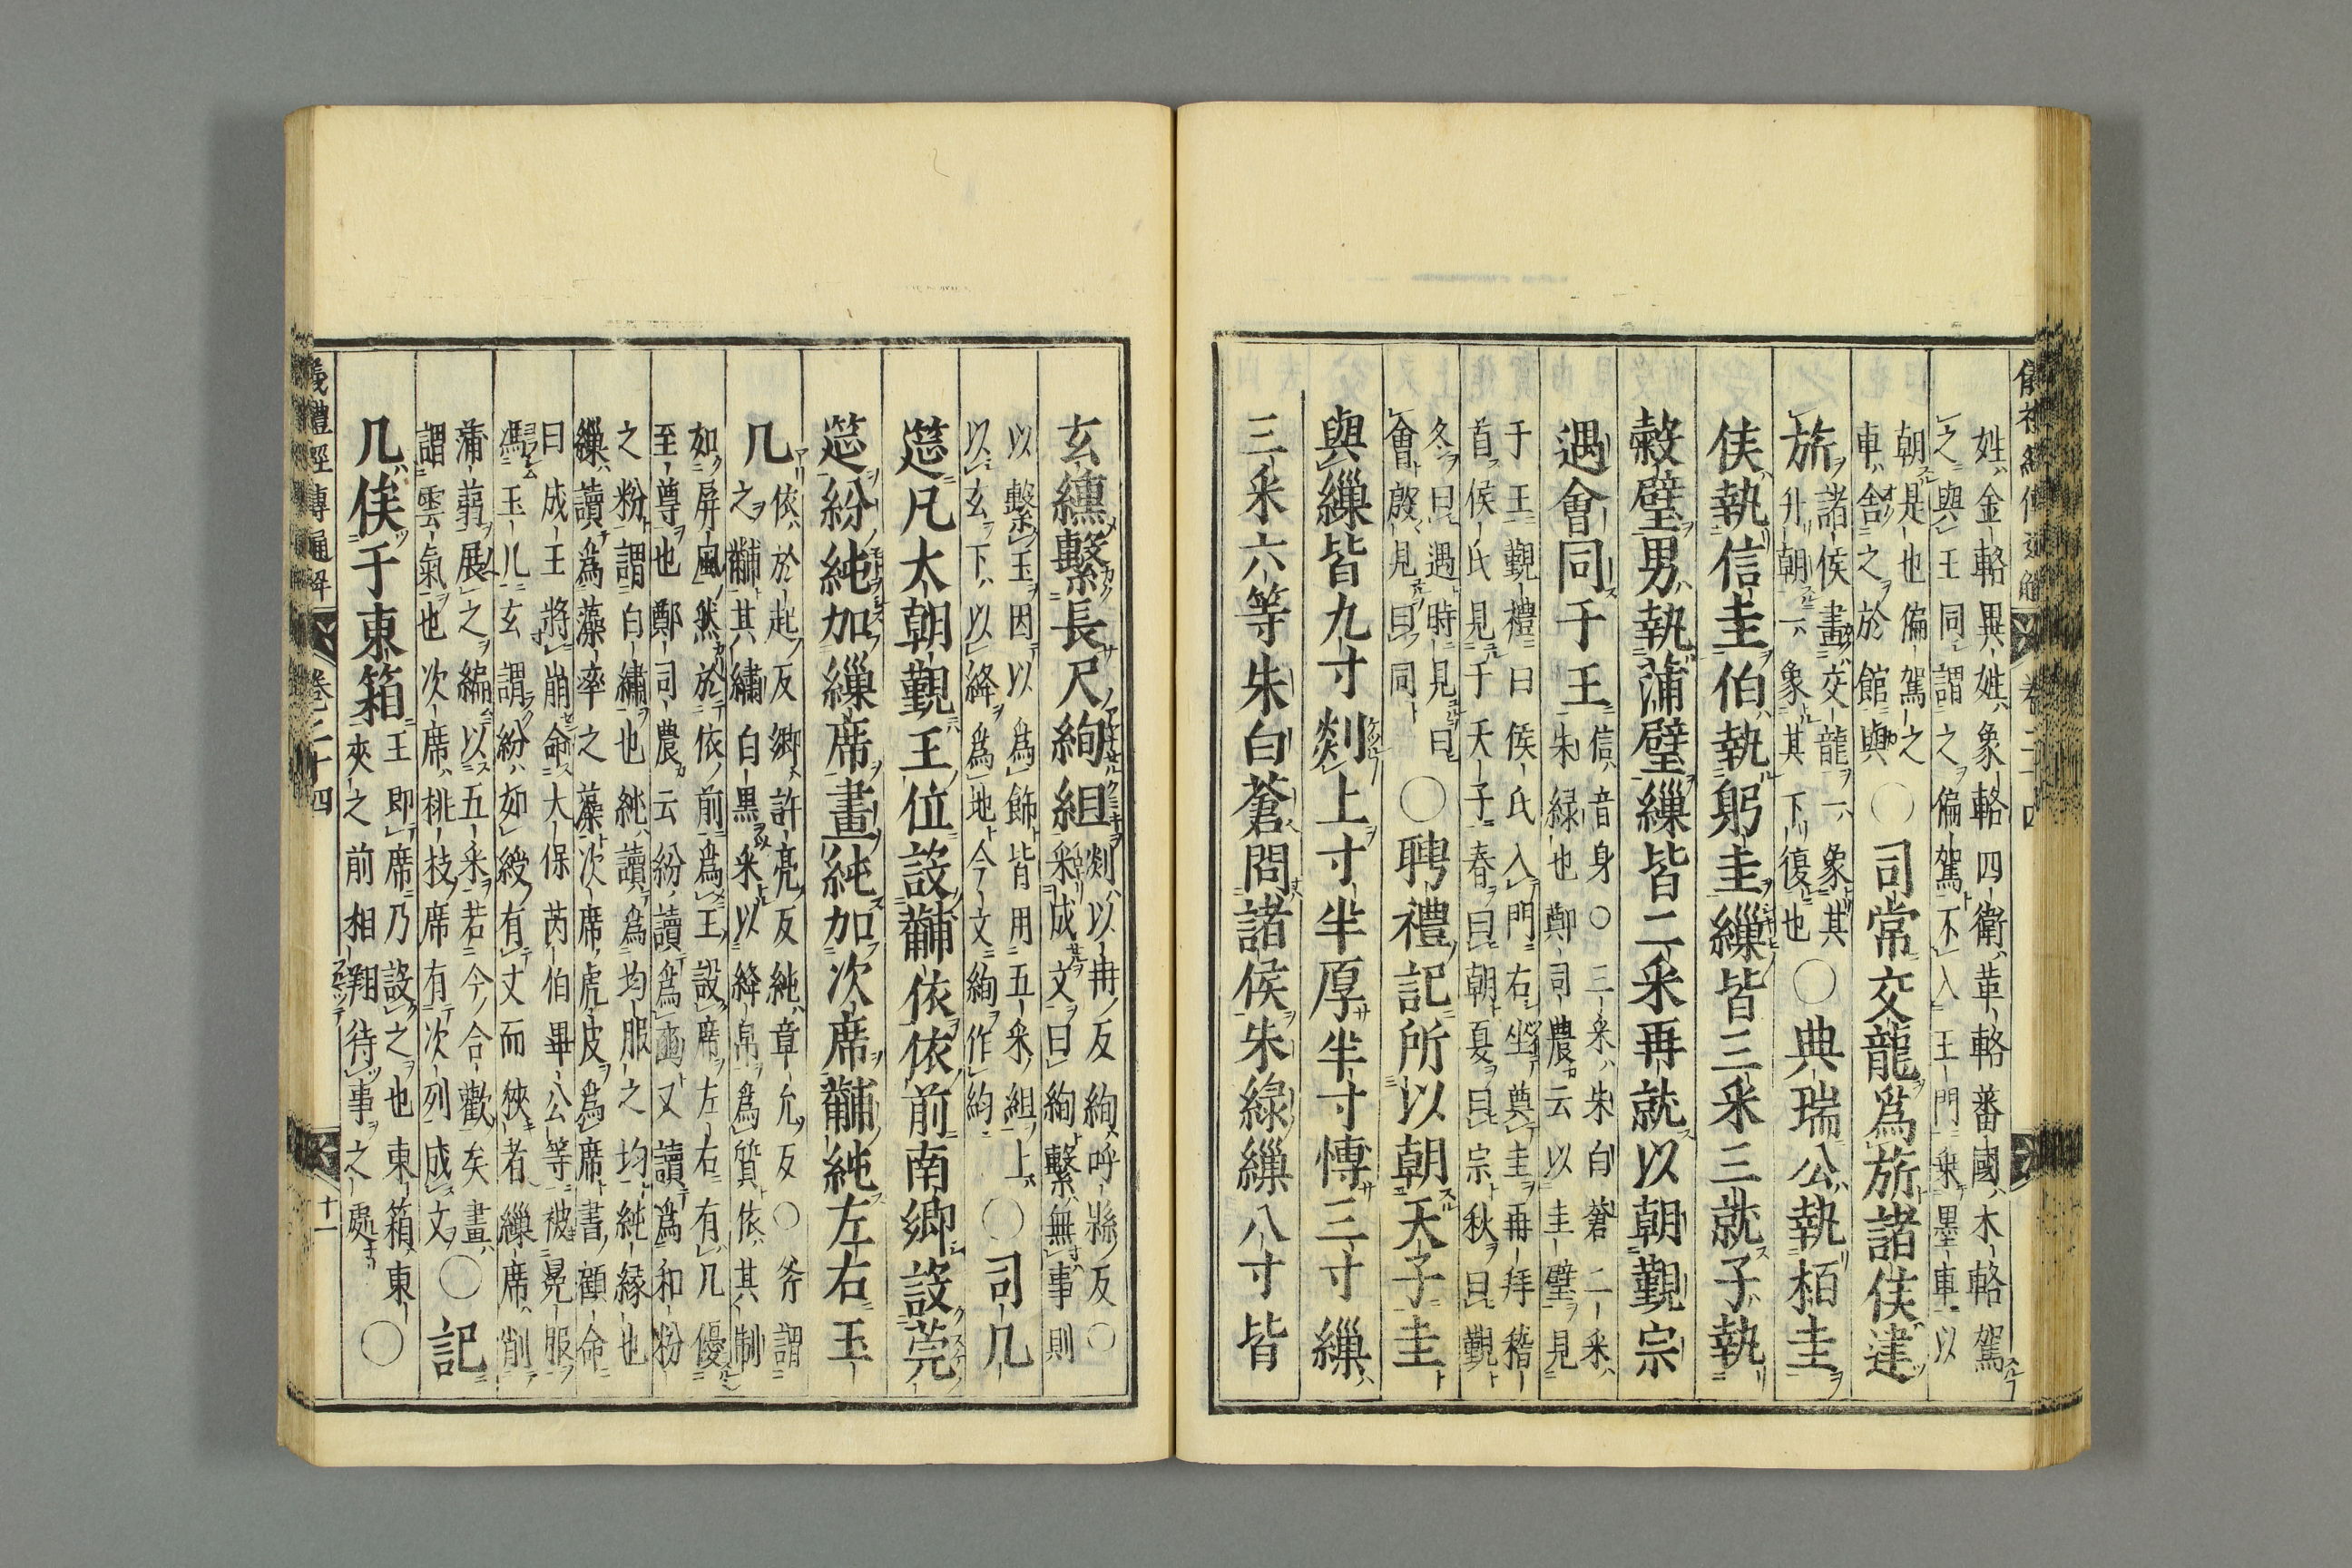 姓金輅異姓象輅四衛革輅蕃國木輅駕
之與王同謂之偏駕不入王門乘墨車以
朝是也偏駕之
車舍之於館與
○司常交龍爲旂諸侯建
旂
諸侯畫交龍一象其
升朝一象其下復也
○典瑞公執桓圭
侯執信圭伯執躬圭繅皆三采三就子執
穀璧男執蒲璧繅皆二采再就以朝覲宗
遇會同于王
信音身○三采朱白蒼二采
朱綠也鄭司農云以圭璧見
于王覲禮曰侯氏入門右坐奠圭再拜稽
首侯氏見于天子春曰朝夏曰宗秋曰覲
冬曰遇時見曰
會殷見曰同
○聘禮記所以朝天子圭
與繅皆九寸剡上寸半厚半寸博三寸繅
三采六等朱白蒼問諸侯朱綠繅八寸皆
儀禮經傳通解
卷二十四
玄纁繫長尺絢組
剡以冉反絢呼縣反○
采成文曰絢繫無事則
以繫玉因以爲飾皆用五采組上
以玄下以絳爲地今文絢作約
○司几
筵凡大朝覲王位設黼依依前南鄉設莞
筵紛純加繅席畫純加次席黼純左右玉
几
依於起反鄉許亮反純章允反○斧謂
之黼其繡白黑采以絳帛爲質依其制
如屏風然於依前爲王設席左右有几優
至尊也鄭司農云紛讀爲豳又讀爲和粉
之粉謂白繡也純讀爲均服之均純緣也
繅讀爲藻率之藻次席虎皮爲席書顧命
曰成王將崩命大保芮伯畢公等被冕服
馮玉几玄謂紛如綬有文而狹者繅席削
蒲蒻展之編以五采若今合歡矣畫
謂雲氣也次席桃枝席有次列成文
○記
几俟于東箱
王即席乃設之也東箱東
夾之前相翔待事之處
○
儀禮經傳通解
卷二十四
十一